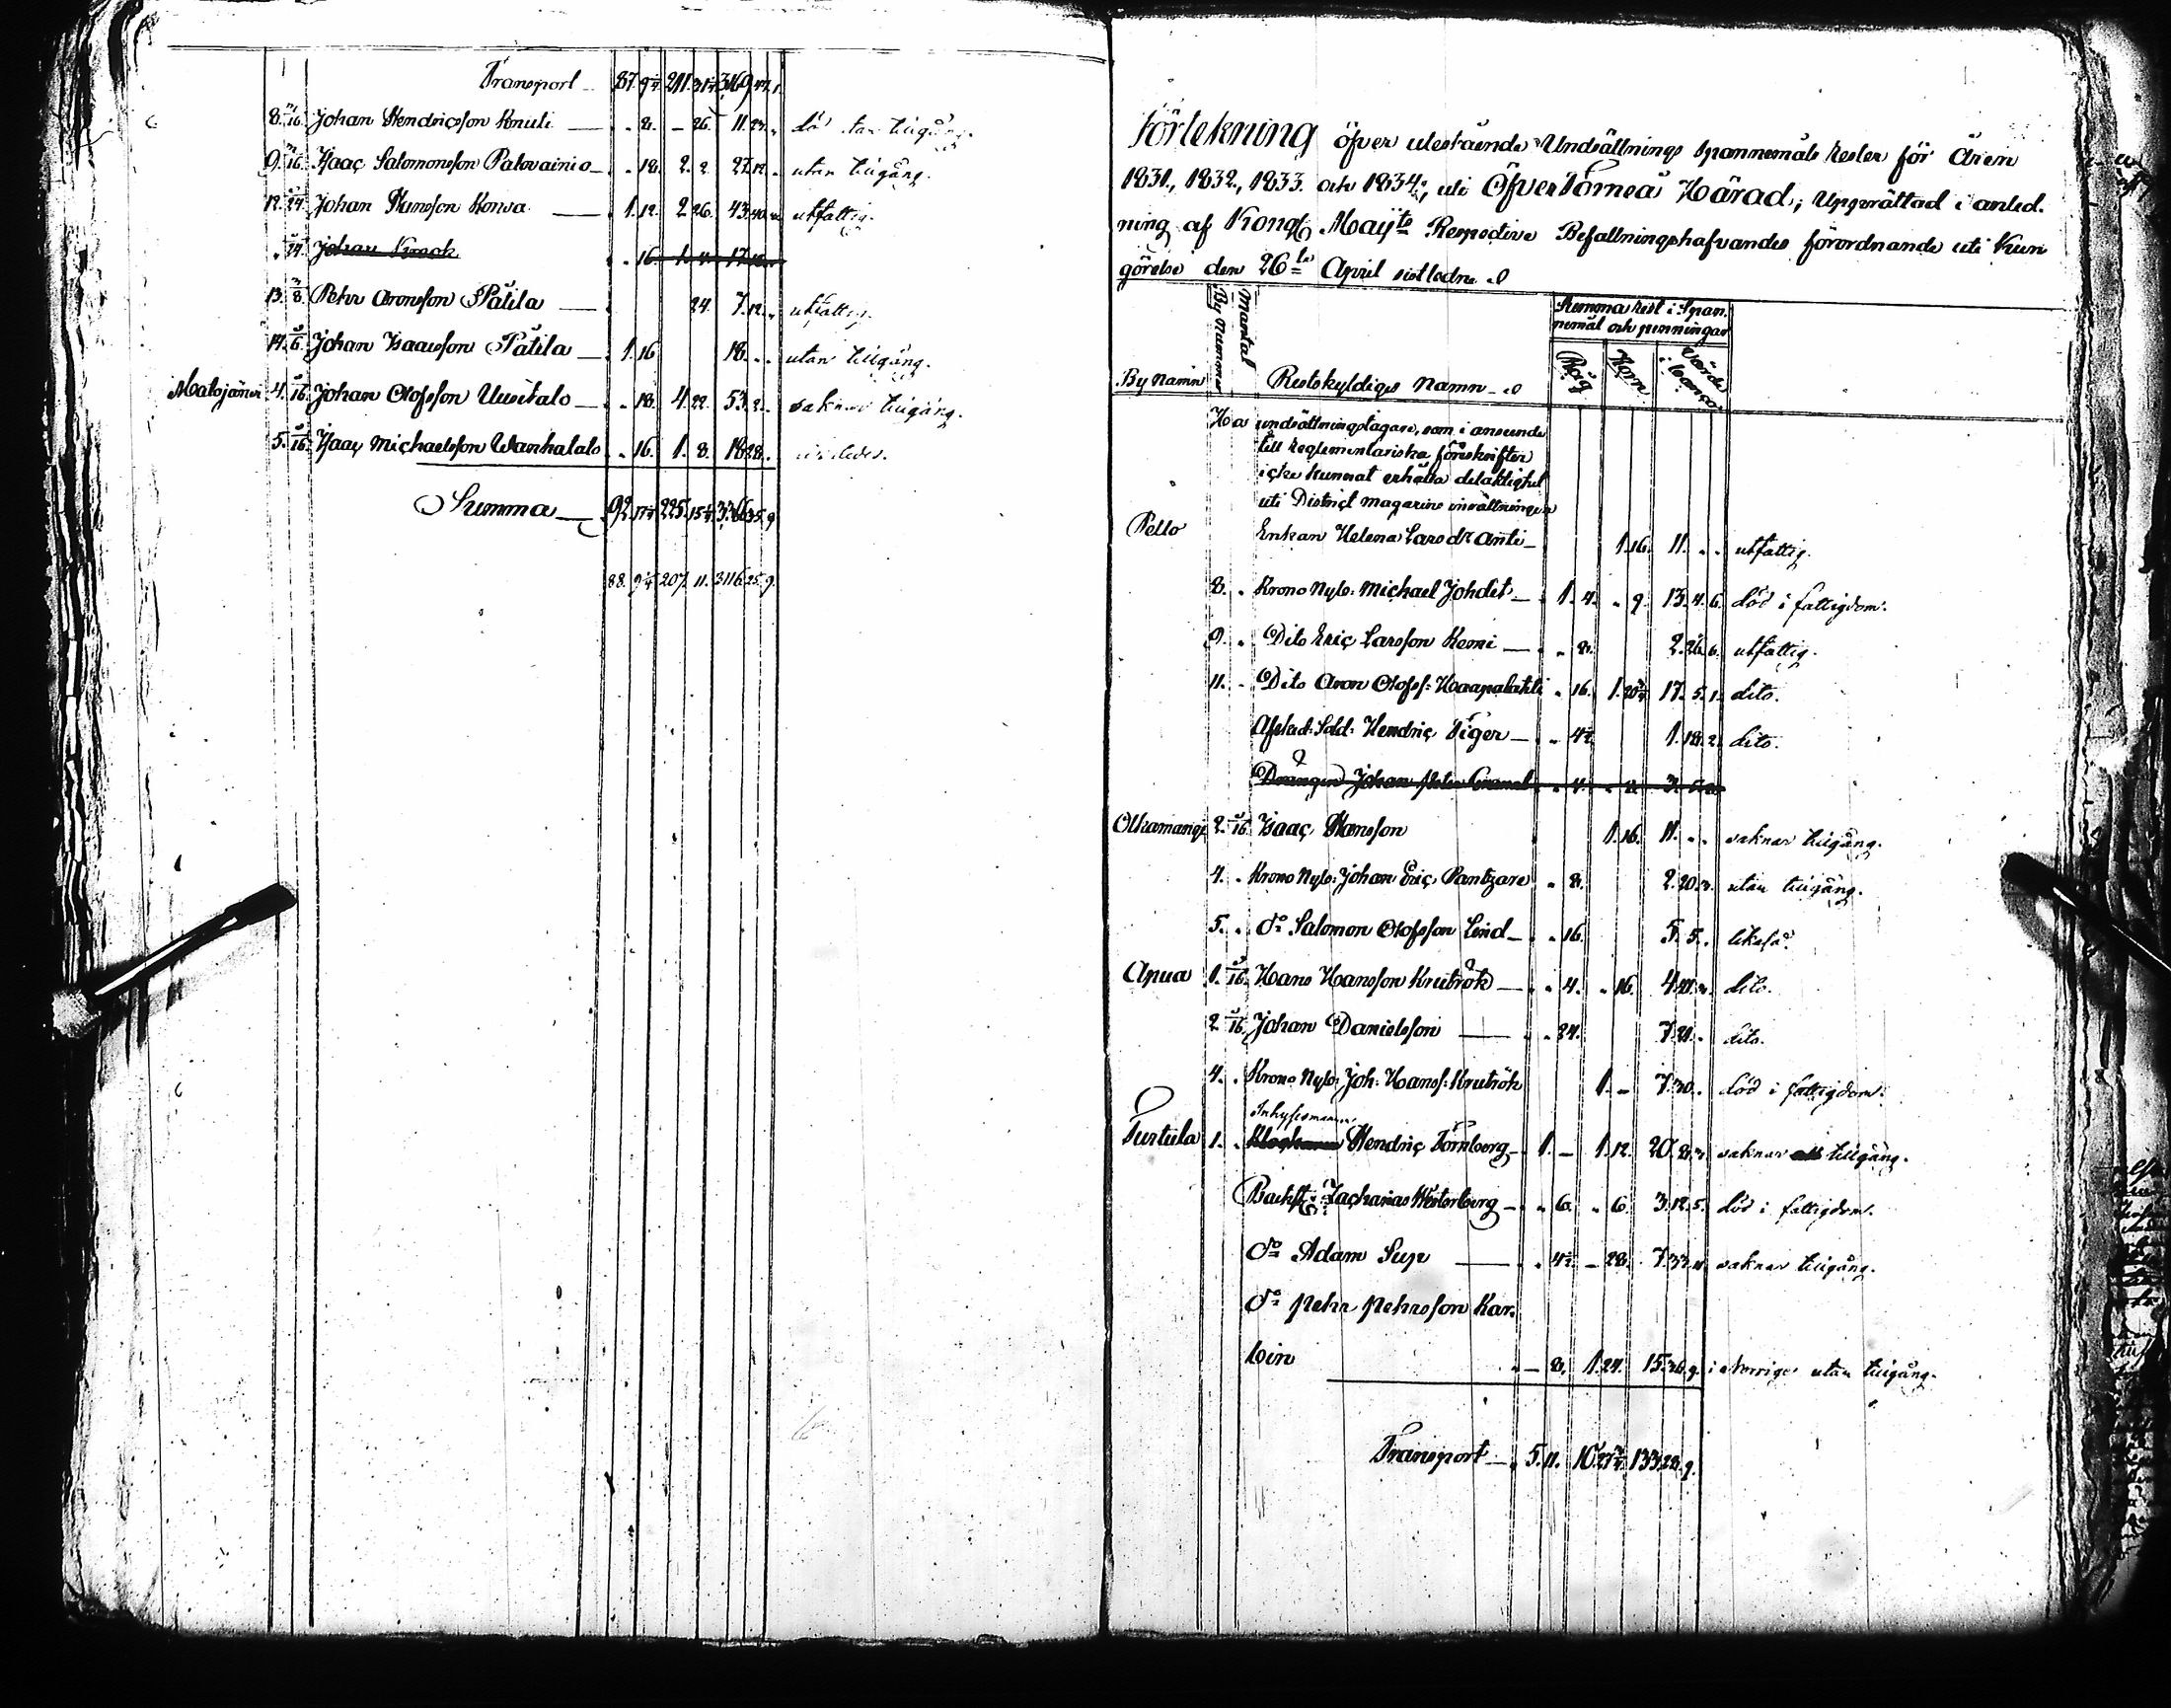 Transport 87. 9¼ 211. 31¼ 3169. 47. 1.
8. 1/16 Johan Hendricsson Knuti — „ 8. — 26. 11. 23. „ död utan tillgång.
9. 1/16 Isaac Salomonsson Palovainio — „ 18. 2. 2. 27. 12. „ utan tillgång.
12. Johan Hansson Konva — 1. 12. 2. 26. 43. 40. utfattig.
„ Johan Krook „ 16. 1. 17.
13. 1/8 Pehr Aronsson Pätilä — 24. 7. 12. „ utfattig.
14. Johan Isaacsson Pätilä — 1. 16 18. „ „ utan tillgång.
Matojärvi 4. 1/16 Johan Olofsson Uusitalo — „ 18. 4. 22. 53. 2. „ saknar tillgång.
5. 1/16 Isaac Michaelsson Wanhatalo „ 16. 1. 8. 18. 28. „
Summa — 92. 225. 3366. 35. 9.
88. 9¼ 207. 11. 3116. 25. 9.
Förtekning öfver utestående Undsättnings Spannemåls Rester för Åren
1831., 1832., 1833. och 1834., uti ÖfverTorneå Härad; Upprättad i anled-
ning af Kongl Maijts Respective Befallningshafvandes förordnande uti Kun
görelse den 26te April sistledne
By Namn
By Nummer
Mantal
Restskyldiges Namn
Summa Rest i Span-
nemål och penningar
Råg
Korn
Värde i Banco
undsättningstagare, som i anseende
till Reglementariska föreskrifter
icke kunnat erhålla delaktighet
uti District magazins inrättningen
Pello Enkan Helena Larsdr Anti — 1. 16. 11. „ „ utfattig.
8. „ Krono Nyb: Michael Johdet — 1. 4. „ 9. 13. 4. 6. död i fattigdom.
9. „ Dito Eric Larsson Kemi — „ 8. 2. 26. 6. utfattig.
11. „ Dito Aron Olofs: Haapalahti „ 16. 1. 20¾ 17. 5. 1. dito.
Afsked: Sold: Hendric Tiger — „ 4½ 1. 18. 2. dito.
Drängen Johan Peter Granat „ 4. „ 8. 3.
Olkamangi 2. 1/16 Isaac Hansson 1. 16. 11. „ „ saknar tillgång.
4. „ Krono Nyb: Johan Eric Pantzare „ 8. 2. 20. 3. utan tillgång.
5. „ Do Salomon Olofsson Lind — „ 16. 5. 5. „ likaså.
Apua 1. 1/16 Hans Hansson Krutrök — „ 4. „ 16. 4. dito.
2. 1/16 Johan Danielsson — „ 24. 7. 21. „ dito.
4. „ Krono Nyb: Joh: Hanss: Krutrök 1. — 7. 30. „ död i fattigdom.
Inhysesmannen
Turtula 1. „ Hendric Törnberg — 1. — 1. 12. 20. saknar tillgång.
Zacharias Westerberg — „ 6. „ 6. 3. 12. 5. död i fattigdom.
Do Adam Sup — „ 4½ — 28. 7. 33. 11. saknar tillgång.
Do Pehr Pehrsson Kar-
loin „ — 8. 1. 24. 15. 36. 9. i Norrige utan tillgång.
Transport — 5. 11. 10. 27¾ 133. 28. 9.